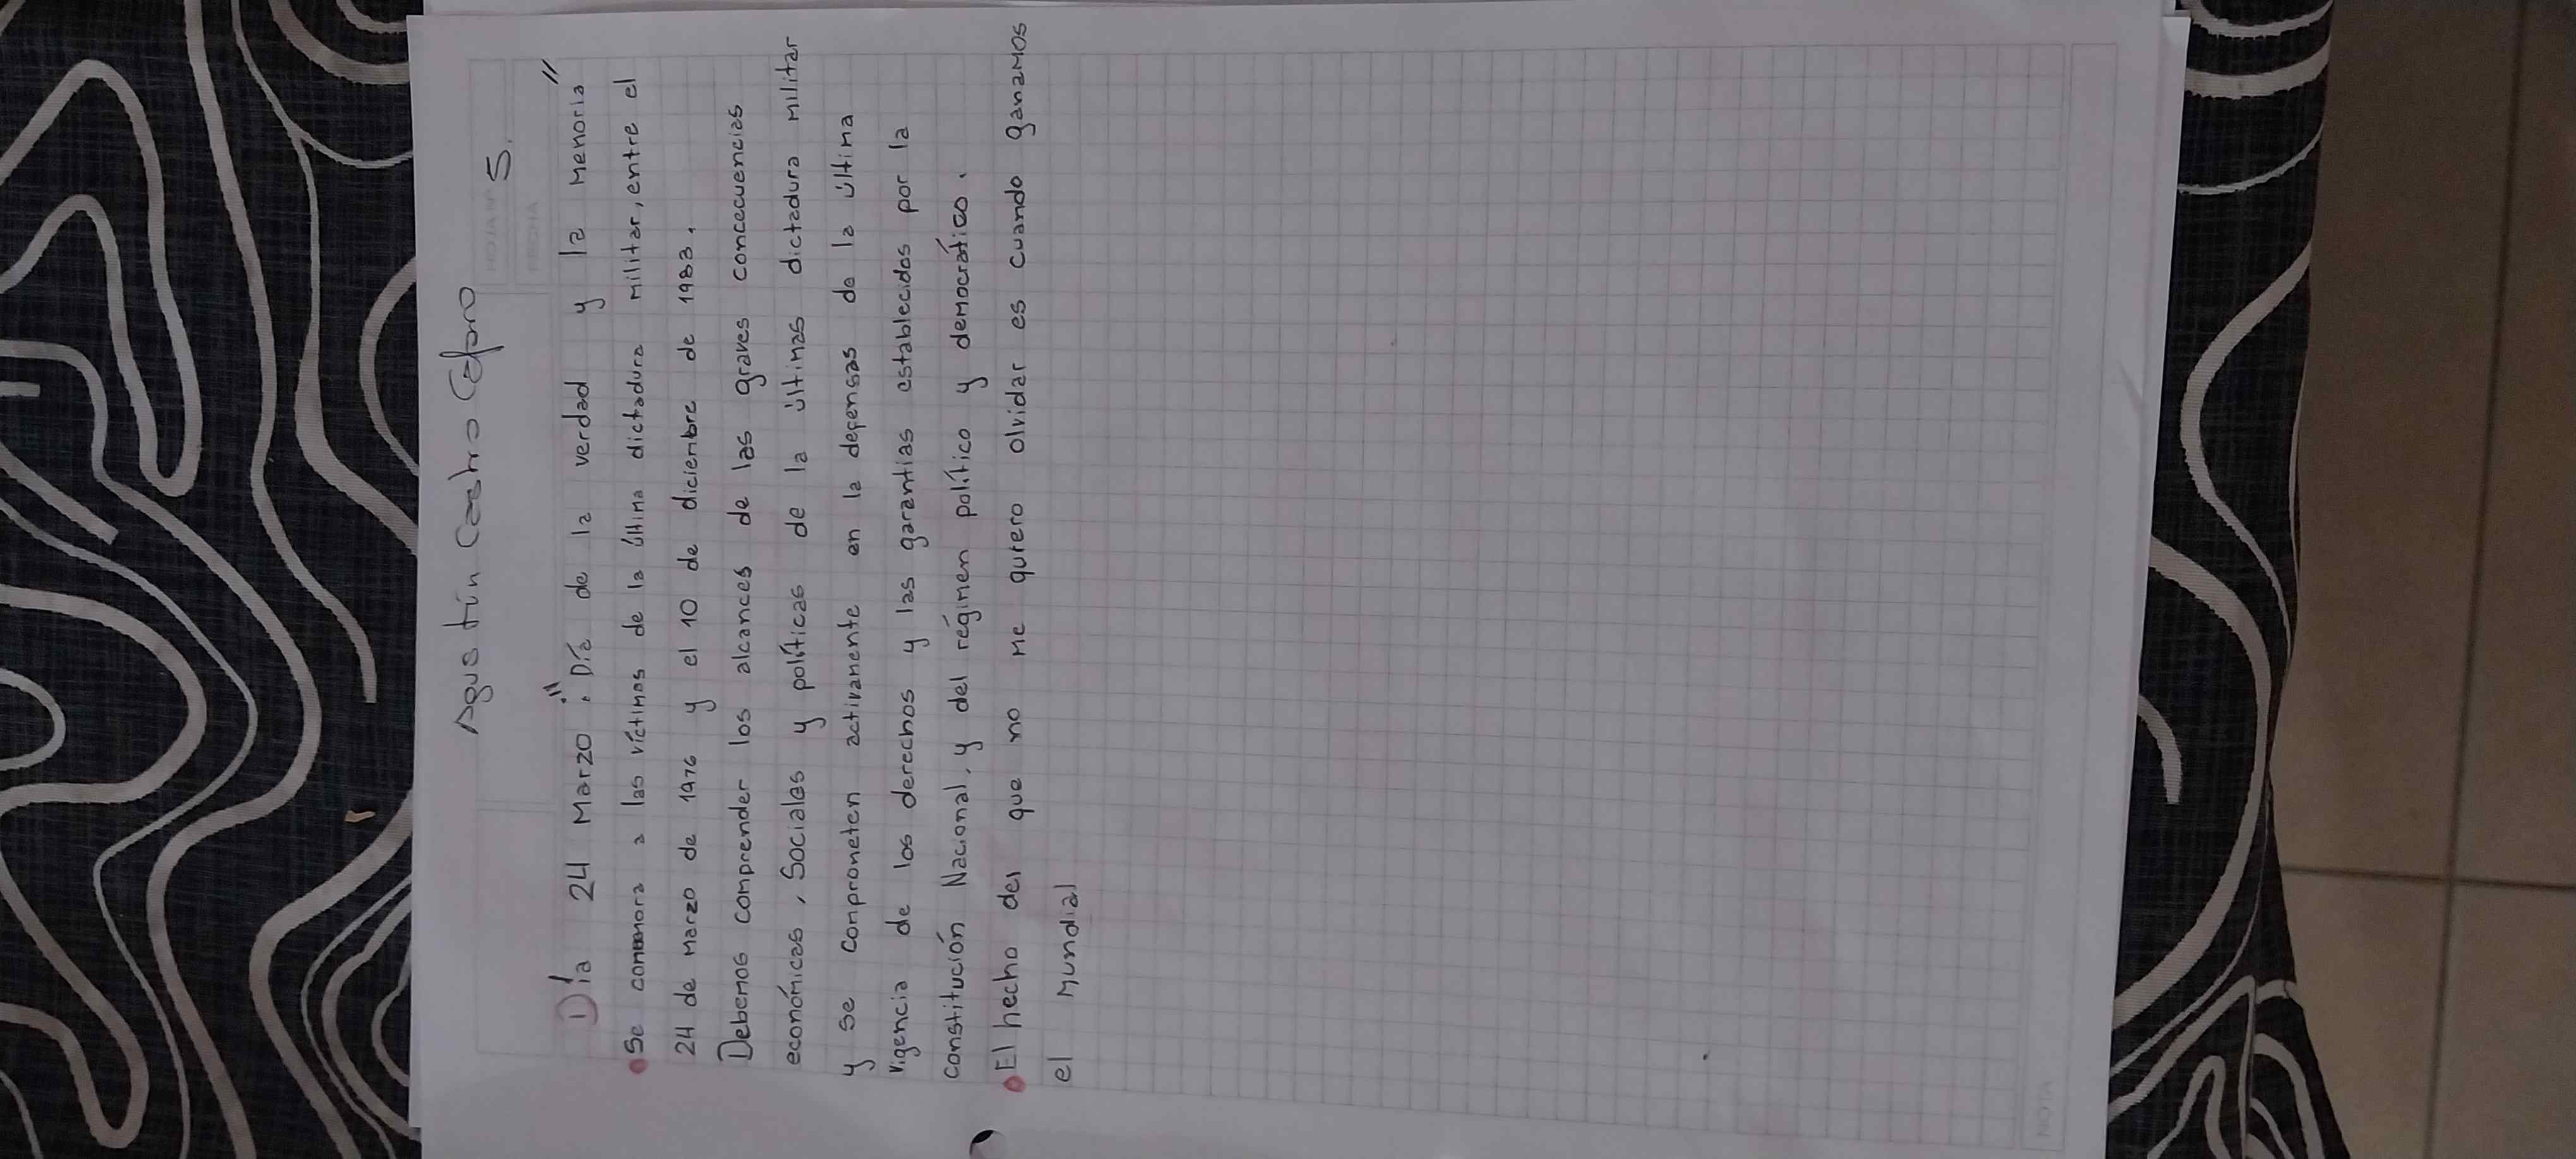 Agustín Castro Cfaro
HOJA Nº 5.
FECHA
Día 24 Marzo : "Día de la verdad y la Menoria"
Se conmemora a las víctimas de la última dictadura militar, entre el
24 de Marzo de 1976 y el 10 de diciembre de 1983.
Debemos comprender los alcances de las graves concecuencias
económicas, Sociales y políticas de la últimas dictadura militar
y se comprometen activamente en la defensas de la última
vigencia de los derechos y las garantías establecidos por la
constitución Nacional, y del régimen político y democrático.
El hecho del que no me quiero olvidar es cuando ganamos
el Mundial
NOTA